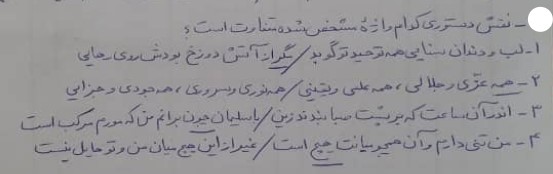 - نقش دستوری کدام واژهٔ مشخص شده متفاوت است؟
۱- لب و دندان سنایی همه توحید تو گوید / مگر از آتش دوزخ بودش روی رهایی
۲- همه عزّی و جلالی، همه علمی و یقینی / همه نوری و سروری، همه جودی و جزایی
۳- اندر آن ساعت که بر پشت صبا بندند زین / با سلیمان چون برانم من که مورم مرکب است
۴- من تنی دارم و آن همچو میانت هیچ است / غیر از این هیچ میان من و تو حایل نیست